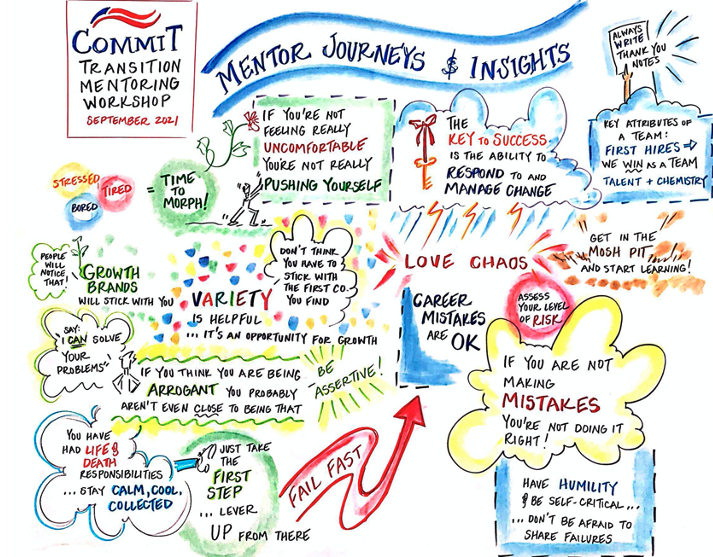 COMMIT
TRANSITION
MENTORING
WORKSHOP
SEPTEMBER 2021
MENTOR JOURNEYS & INSIGHTS
ALWAYS
WRITE
THANK YOU
NOTES
IF YOU'RE NOT
FEELING REALLY
UNCOMFORTABLE
YOU'RE NOT REALLY
PUSHING YOURSELF
THE
KEY TO SUCCESS
IS THE ABILITY TO
RESPOND TO AND
MANAGE CHANGE
KEY ATTRIBUTES OF
A TEAM:
FIRST HIRES ⇒
WE WIN AS A TEAM
TALENT + CHEMISTRY
STRESSED
TIRED
BORED
=
TIME
TO
MORPH!
PEOPLE
WILL
NOTICE
THAT!
GROWTH
BRANDS
WILL STICK WITH YOU
VARIETY
IS HELPFUL
... IT'S AN OPPORTUNITY FOR GROWTH
DON'T THINK
YOU HAVE TO
STICK WITH
THE FIRST CO.
YOU FIND
LOVE CHAOS
GET IN THE
MOSH PIT
AND START LEARNING!
CAREER
MISTAKES
ARE OK
ASSESS
YOUR LEVEL
OF RISK
SAY:
"I CAN SOLVE
YOUR
PROBLEMS"
IF YOU THINK YOU ARE BEING
ARROGANT YOU PROBABLY
AREN'T EVEN CLOSE TO BEING THAT
BE
ASSERTIVE!
IF YOU ARE NOT
MAKING
MISTAKES
YOU'RE NOT DOING IT
RIGHT!
YOU HAVE
HAD LIFE &
DEATH
RESPONSIBILITIES
... STAY CALM, COOL,
COLLECTED
JUST TAKE
THE
FIRST
STEP
... LEVER
UP FROM THERE
FAIL FAST
HAVE HUMILITY
& BE SELF-CRITICAL...
... DON'T BE AFRAID TO
SHARE FAILURES